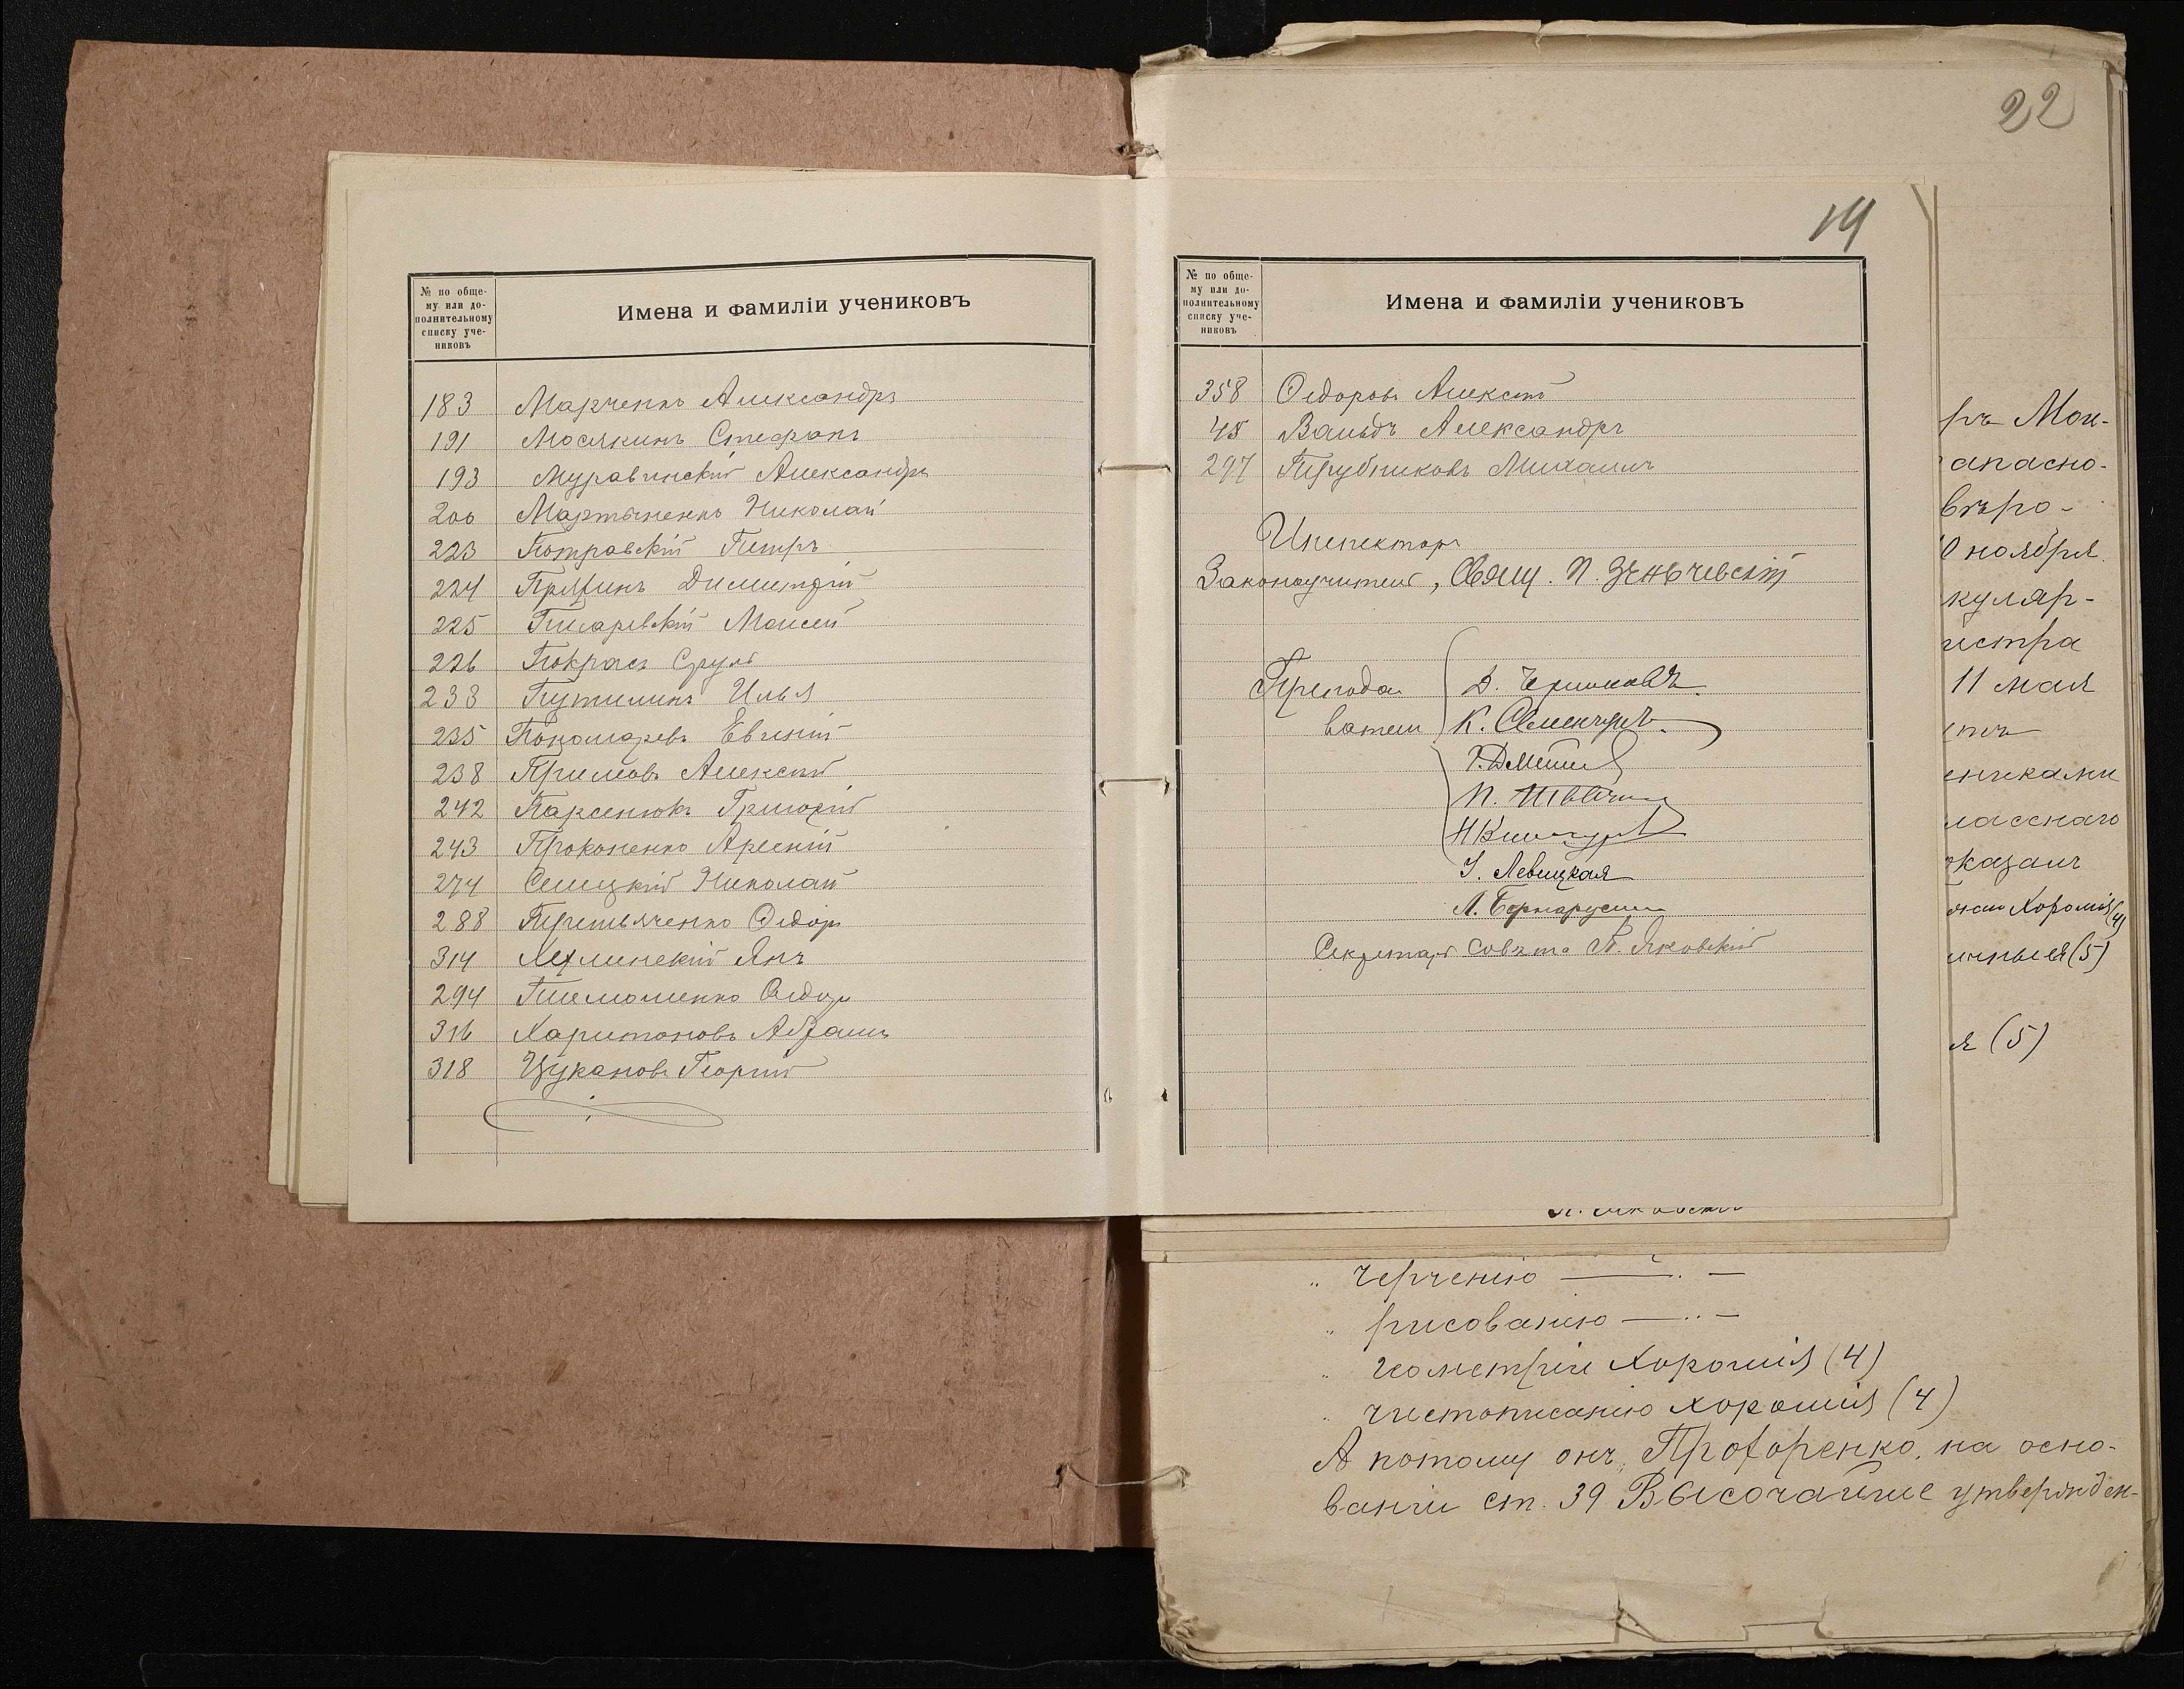 22
14
№ по обще-
му или до-
полнительному
списку уче-
никовъ
Имена и фамиліи учениковъ
183 Марченко Александръ
191 Мосякинъ Стефанъ
193 Муравинскій Александръ
200 Мартыненко Николай
223 Петровскій Петръ
224 Дмитрій
225 Писаревскій Моисей
226 Покрасъ Сруль
233 Путилинъ Илья
235 Пономаревъ Евгеній
238 Примовъ Алексѣй
242 Парсенюкъ Григорій
243 Прокопенко Арсеній
274 Сѣницкій Николай
288 Третьяченко Ѳедоръ
314 Хехлинскій Янъ
294 Тимошенко Ѳедоръ
316 Харитоновъ Абрамъ
318 Цукановъ Георгій
№ по обще-
му или до-
полнительному
списку уче-
никовъ
Имена и фамиліи учениковъ
358 Ѳедоровъ Алексѣй
45 Вальдъ Александръ
297 Трубниковъ Михаилъ
Инспекторъ
Законоучитель, Свящ. П. Зеньчевскій
Препода-
ватели
Д.
К. Семенчукъ
П.
Н.
У. Левицкая
Л.
Секретарь Совѣта П. Яковскій
ръ Мои-
апасно-
вѣро-
0 ноября
куляр-
истра
11 мая
никами
ласснаго
казалъ
Хорошія (4)
ичныя (5)
я (5)
„ черченію — „ —
„ рисованію — „ —
„ геометріи хорошія (4)
„ чистописанію хорошія (4)
А потому онъ, Прохоренко, на осно-
ваніи ст. 39 Высочайше утвержден-